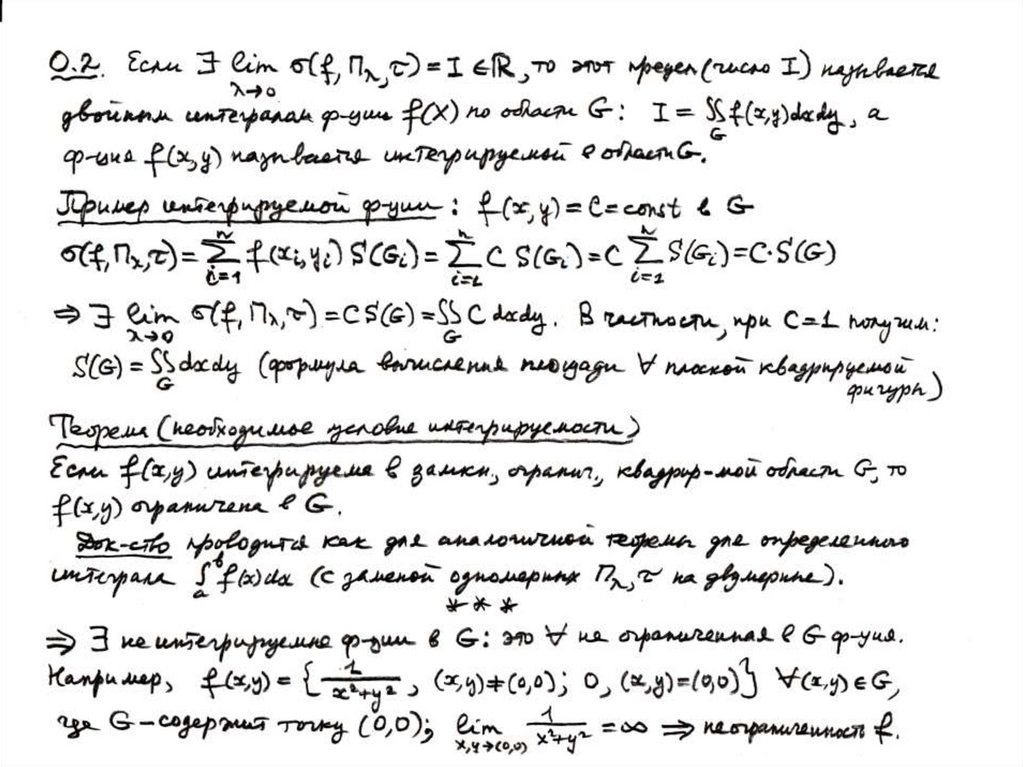 О.2. Если ∃ lim σ(f, Π_λ, τ) = I ∈ ℝ, то этот предел (число I) называется
λ→0
двойным интегралом ф-ции f(X) по области G: I = ∬ f(x,y)dxdy, а
G
ф-ция f(x,y) называется интегрируемой в области G.
Пример интегрируемой ф-ции: f(x,y) = C = const в G
σ(f, Π_λ, τ) = ∑_{i=1}^{n} f(x_i, y_i) S(G_i) = ∑_{i=1}^{n} C S(G_i) = C ∑_{i=1}^{n} S(G_i) = C·S(G)
⇒ ∃ lim σ(f, Π_λ, τ) = C S(G) = ∬ C dxdy. В частности, при C=1 получим:
λ→0 G
S(G) = ∬ dxdy (формула вычисления площади ∀ плоской квадрируемой
G фигуры)
Теорема (необходимое условие интегрируемости)
Если f(x,y) интегрируема в замкн., огранич., квадрир-мой области G, то
f(x,y) ограничена в G.
Док-ство проводится как для аналогичной теоремы для определенного
интеграла ∫_a^b f(x)dx (с заменой одномерных Π_λ, τ на двумерные).
* * *
⇒ ∃ не интегрируемые ф-ции в G: это ∀ не ограниченная в G ф-ция.
Например, f(x,y) = { 1/(x²+y²), (x,y)≠(0,0); 0, (x,y)=(0,0)} ∀(x,y)∈G,
где G – содержит точку (0,0); lim 1/(x²+y²) = ∞ ⇒ неограниченность f.
x,y→(0,0)